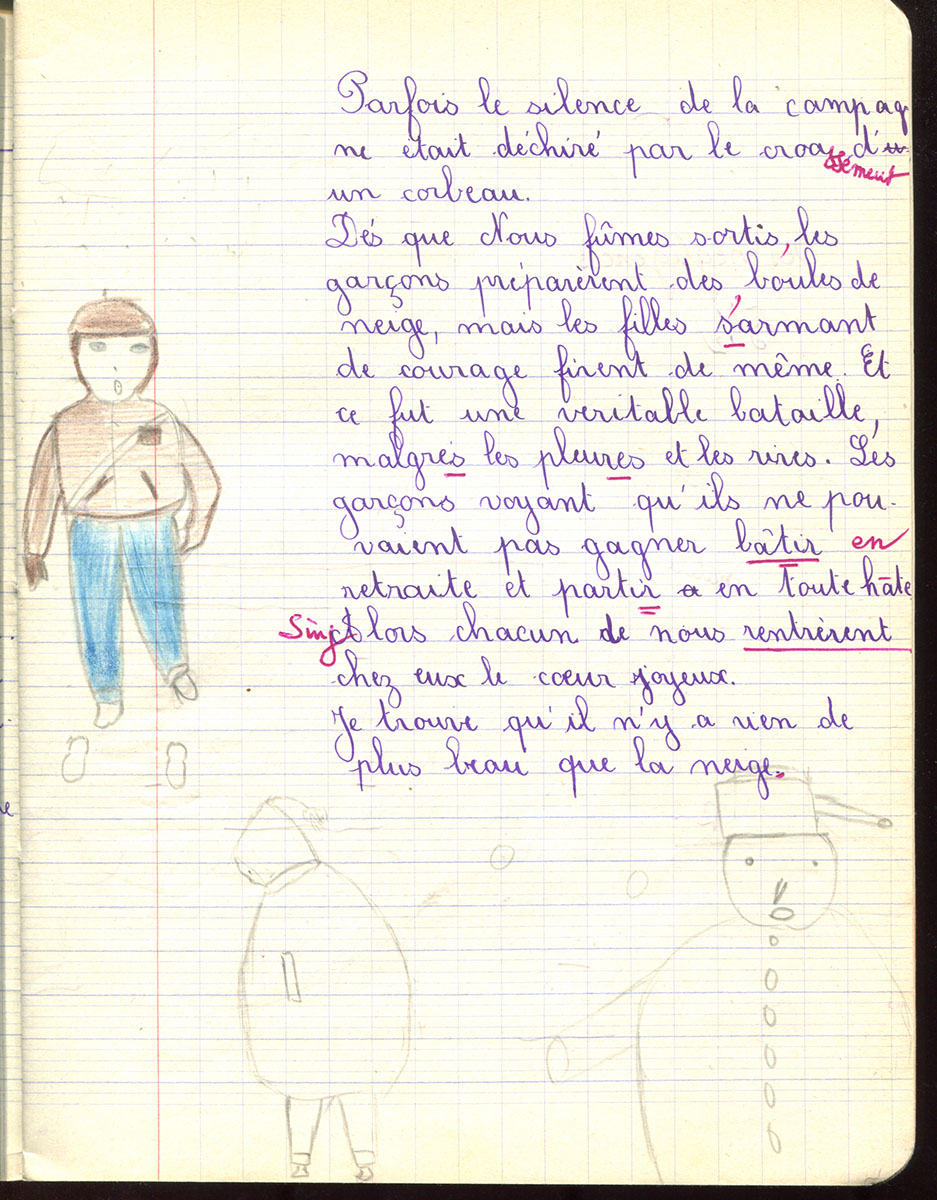 Parfois le silence de la campag
ne était déchiré par le croassement d'
un corbeau.
Dés que Nous fûmes sortis, les
garçons préparèrent des boules de
neige, mais les filles s'armant
de courage firent de même. Et
ce fut une veritable bataille,
malgrés les pleures et les rires. Les
garçons voyant qu'ils ne pou-
vaient pas gagner bâtir en
retraite et partir en toute hâte
Sing lors chacun de nous rentrèrent
chez eux le cœur joyeux.
Je trouve qu'il n'y a rien de
plus beau que la neige.